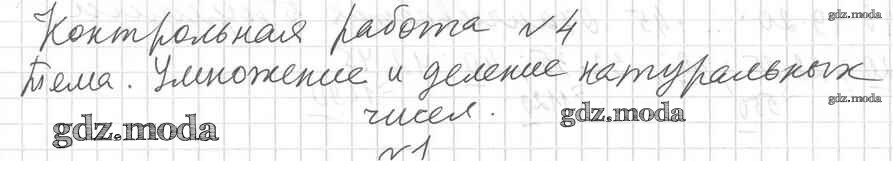 Контрольная работа №4
Тема. Умножение и деление натуральных
чисел.
№1
gdz.moda
gdz.moda
gdz.moda
gdz.moda
gdz.moda